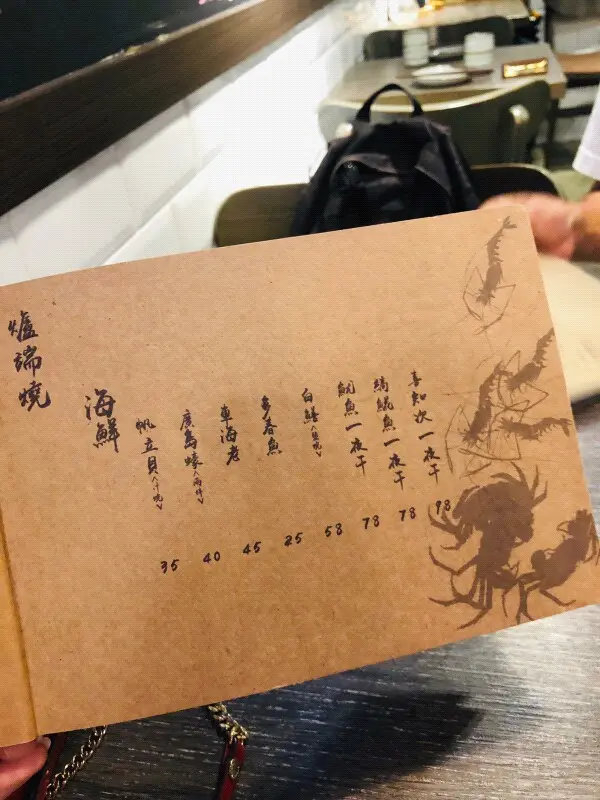 爐端燒
海鮮
帆立貝〈汁燒〉 35
廣島蠔〈兩件〉 40
車海老 45
多春魚 25
白鱔〈鹽燒〉 58
魷魚一夜干 78
縞鯤魚一夜干 78
喜知次一夜干 98